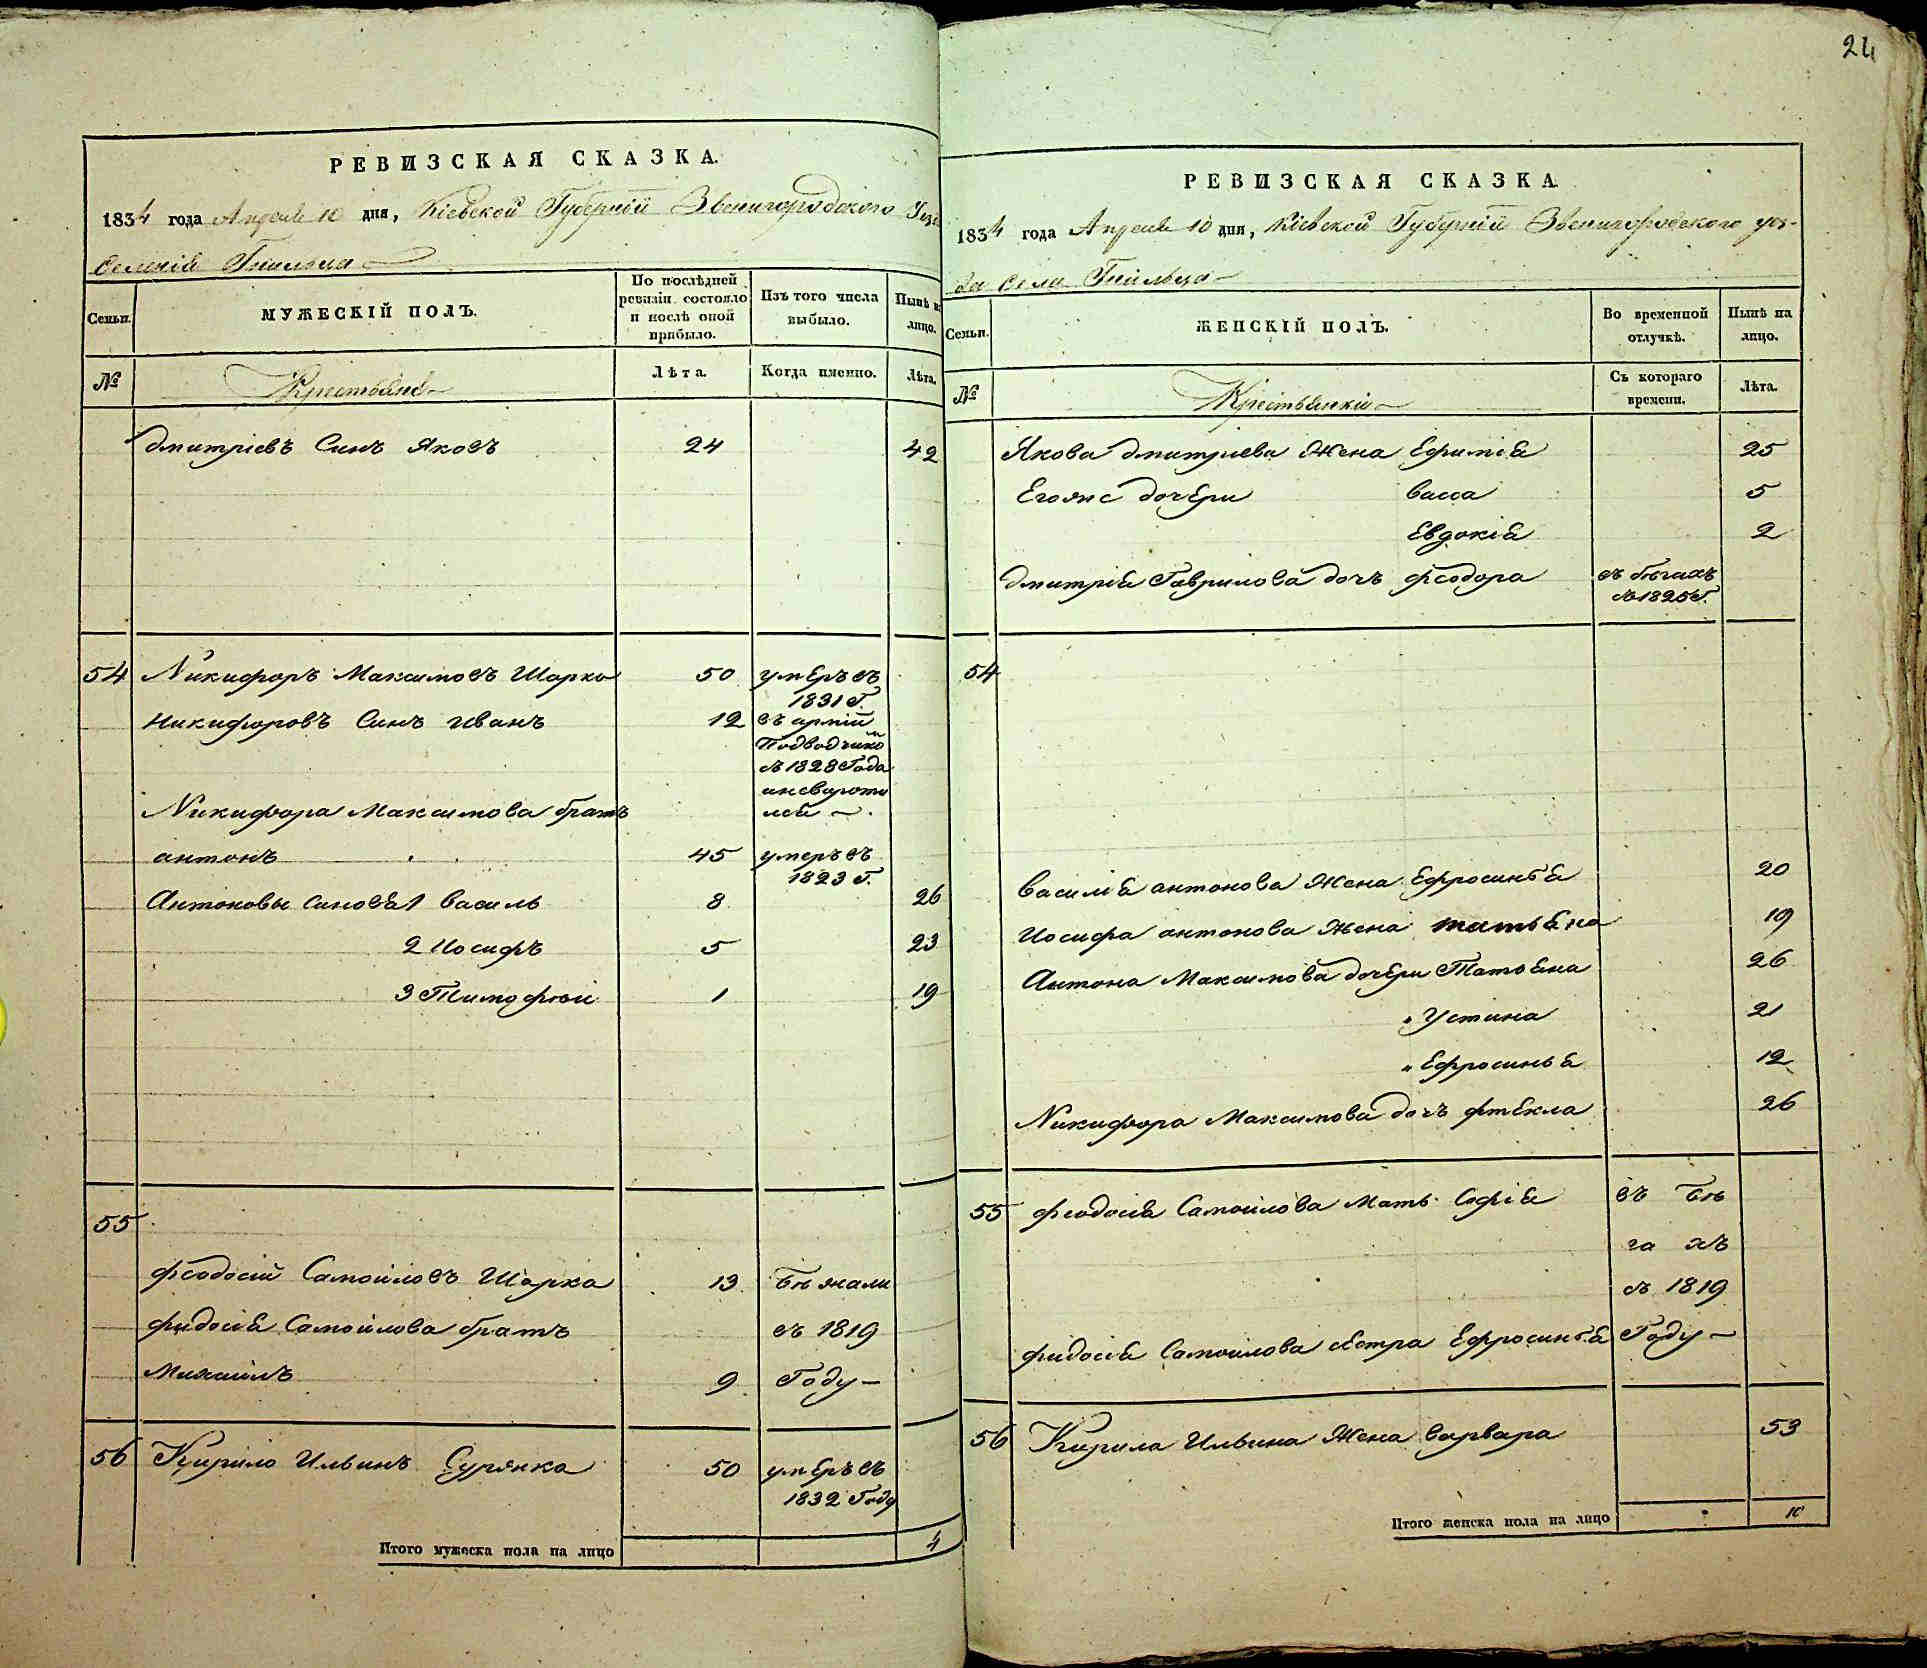 24
РЕВИЗСКАЯ СКАЗКА.
1834 года Апреля 10 дня, Кіевской Губерніи Звенигородского Уез
селенія Гнильца
Семьи.
МУЖЕСКІЙ ПОЛЪ.
По послѣдней ревизіи состояло и послѣ оной прибыло.
Изъ того числа выбыло.
Нынѣ на лицо.
№
Крестьяне
Лѣта.
Когда именно.
Лѣта.
дмитріевъ Синъ Яковъ 24 42
54 Никифоръ Максимовъ Шарко 50 умеръ въ
1831 г.
Никифоровъ Синъ иванъ 12 въ арміи
Подводчико
съ 1828 Года
Никифора Максимова братъ
антонъ 45 умеръ въ
1823 г.
Антоновы синовя 1 василь 8 26
2 Иосифъ 5 23
3 Тимофѣй 1 19
55
феодосій Самойловъ Шарка 13 бѣжали
фидосія Самойлова братъ въ 1819
Михаилъ 9 Году
56 Кирило Ильинъ Сурянка 50 умеръ въ
1832 Году
Итого мужеска пола на лицо 4
РЕВИЗСКАЯ СКАЗКА
1834 года Апреля 10 дня, Кіевской Губерніи Звенигородского уез-
да села Гнильца
Семьи.
ЖЕНСКІЙ ПОЛЪ.
Во временной отлучкѣ.
Нынѣ на лицо.
№
Крестьянки
Съ котораго времени.
Лѣта.
Якова дмитриева Жена Ефимія 25
Егояже дочери васса 5
Евдокія 2
дмитрія Гаврилова дочъ феодора въ бѣгахъ
съ 1825 г.
54
василія антонова Жена Ефросинья 20
Иосифа антонова Жена татьяна 19
Антона Максимова дочери Татьяна 26
„ Устина 21
„ Ефросинья 12
Никифора Максимова дочъ фтекла 26
55 феодосія Самойлова Мать Софія въ бѣ
га хъ
съ 1819
фидосія Самоилова сестра Ефросинья Году
56 Кирила Ильина Жена варвара 53
Итого женска пола на лицо 10